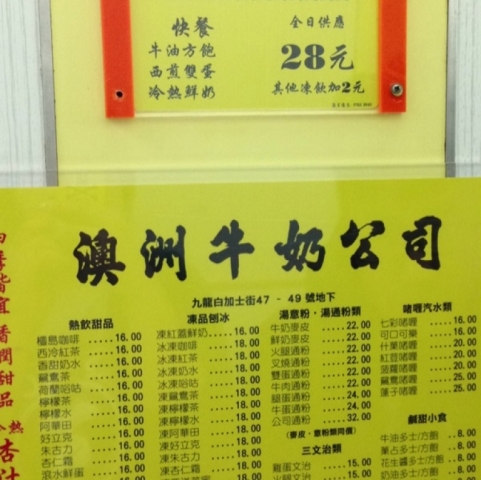 快餐
全日供應
牛油方飽
28元
西煎雙蛋
冷熱鮮奶
其他凍飲加2元
四季皆宜
香潤甜品
冷熱杏汁
澳洲牛奶公司
九龍白加士街47 - 49 號地下
熱飲甜品
檀島咖啡 ..... 16.00
西冷紅茶 ..... 16.00
香甜奶水 ..... 16.00
鴛鴦茶 ....... 16.00
荷蘭嗞咕 ..... 16.00
檸檬茶 ....... 16.00
檸檬水 ....... 16.00
阿華田 ....... 16.00
好立克 ....... 16.00
朱古力 ....... 16.00
杏仁霜 ....... 16.00
滾水鮮蛋 ..... 16.00
凍品刨冰
凍紅蓋鮮奶 ... 16.00
冰凍咖啡 ..... 18.00
冰凍紅茶 ..... 18.00
冰凍奶水 ..... 18.00
冰凍嗞咕 ..... 18.00
凍鴛鴦茶 ..... 18.00
凍檸檬茶 ..... 18.00
凍檸檬水 ..... 18.00
凍阿華田 ..... 18.00
凍好立克 ..... 18.00
凍朱古力 ..... 18.00
凍杏仁霜 ..... 18.00
湯意粉 · 湯通粉
牛奶麥皮 ..... 22.00
鮮奶麥皮 ..... 22.00
火腿通粉 ..... 22.00
叉燒通粉 ..... 22.00
雙蛋通粉 ..... 22.00
牛肉通粉 ..... 22.00
腿蛋通粉 ..... 24.00
牛蛋通粉 ..... 24.00
公司通粉 ..... 32.00
(麥皮、意粉類同價)
三文治類
雞蛋文治 ..... 15.00
火腿文治 ..... 15.00
啫喱汽水類
七彩啫喱 ..... 16.00
可口可樂 ..... 16.00
什菓啫喱 ..... 20.00
紅荳啫喱 ..... 20.00
菠蘿啫喱 ..... 20.00
鴛鴦啫喱 ..... 25.00
蓮子啫喱 ..... 25.00
鹹甜小食
牛油多士/方飽 .. 8.00
菓占多士/方飽 .. 8.00
花生醬多士/方飽 .. 8.00
奶油多士/方飽 .. 8.00